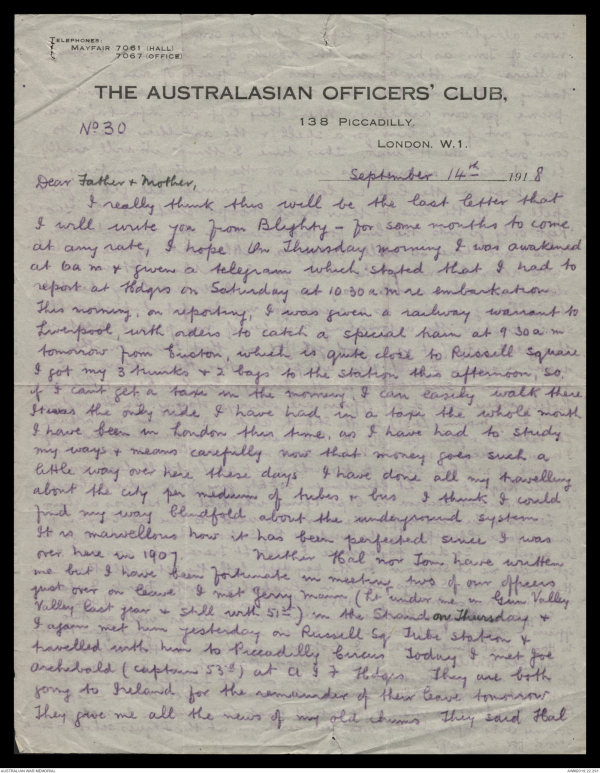 TELEPHONES:
MAYFAIR 7061 (HALL)
7067 (OFFICE)
THE AUSTRALASIAN OFFICERS' CLUB,
138 PICCADILLY,
LONDON, W.1.
No 30
September 14th 1918
Dear Father & Mother,
I really think this will be the last letter that
I will write you from Blighty – for some months to come
at any rate, I hope On Thursday morning I was awakened
at 6 a m & given a telegram which stated that I had to
report at Hdqrs on Saturday at 10.30 a.m re embarkation
This morning, on reporting, I was given a railway warrant to
Liverpool, with orders to catch a special train at 9 30 a m
tomorrow from Euston, which is quite close to Russell Square
I got my 3 trunks & 2 bags to the station this afternoon, so,
if I cant get a taxi in the morning, I can easily walk there
It was the only ride I have had in a taxi the whole month
I have been in London this time, as I have had to study
my ways & means carefully now that money goes such a
little way over here these days I have done all my travelling
about the city per medium of tubes & bus I think I could
find my way blindfold about the underground system
It is marvellous how it has been perfected since I was
over here in 1907. Neither Hal nor Tom have written
me but I have been fortunate in meeting two of our officers
just over on leave I met Gerry Mann (Lt under me in Gun Valley
Valley last year & still with 51st) in the Strand on Thursday &
I again met him yesterday on Russell Sq Tube Station &
travelled with him to Piccadilly Circus Today I met Joe
Archebald (captain 53rd) at A I F Hdqrs They are both
going to Ireland for the remainder of their leave tomorrow
They give me all the news of my old chums They said Hal
AUSTRALIAN WAR MEMORIAL